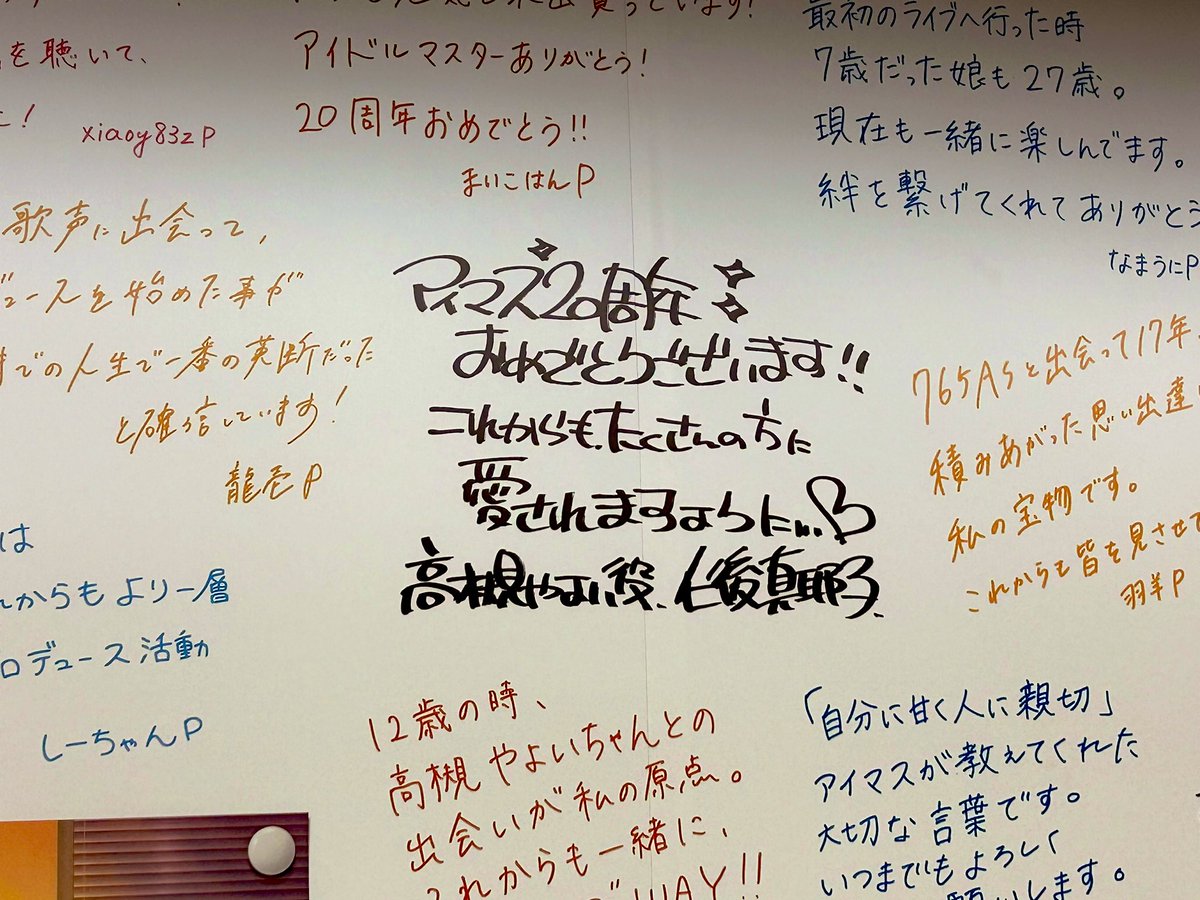 を聴いて、
xiaoy83z P
アイドルマスターありがとう!
20周年おめでとう!!
まいこはんP
最初のライブへ行った時
7歳だった娘も27歳。
現在も一緒に楽しんでます。
絆を繋げてくれてありがとう
なまうにP
歌声に出会って、
デュースを始めた事が
までの人生で一番の英断だった
と確信しています!
龍壱P
アイマス20周年
おめでとうございます!!
これからも、たくさんの方に
愛されますように…♡
高槻やよい役、仁後真耶子、
765ASと出会って17年、
積みあがった思い出達
私の宝物です。
これからも皆を見させて
羽羊P
は
れからもより一層
ロデュース活動
しーちゃんP
12歳の時、
高槻やよいちゃんとの
出会いが私の原点。
これからも一緒に、
WAY!!
「自分に甘く人に親切」
アイマスが教えてくれた
大切な言葉です。
いつまでもよろしく
願いします。